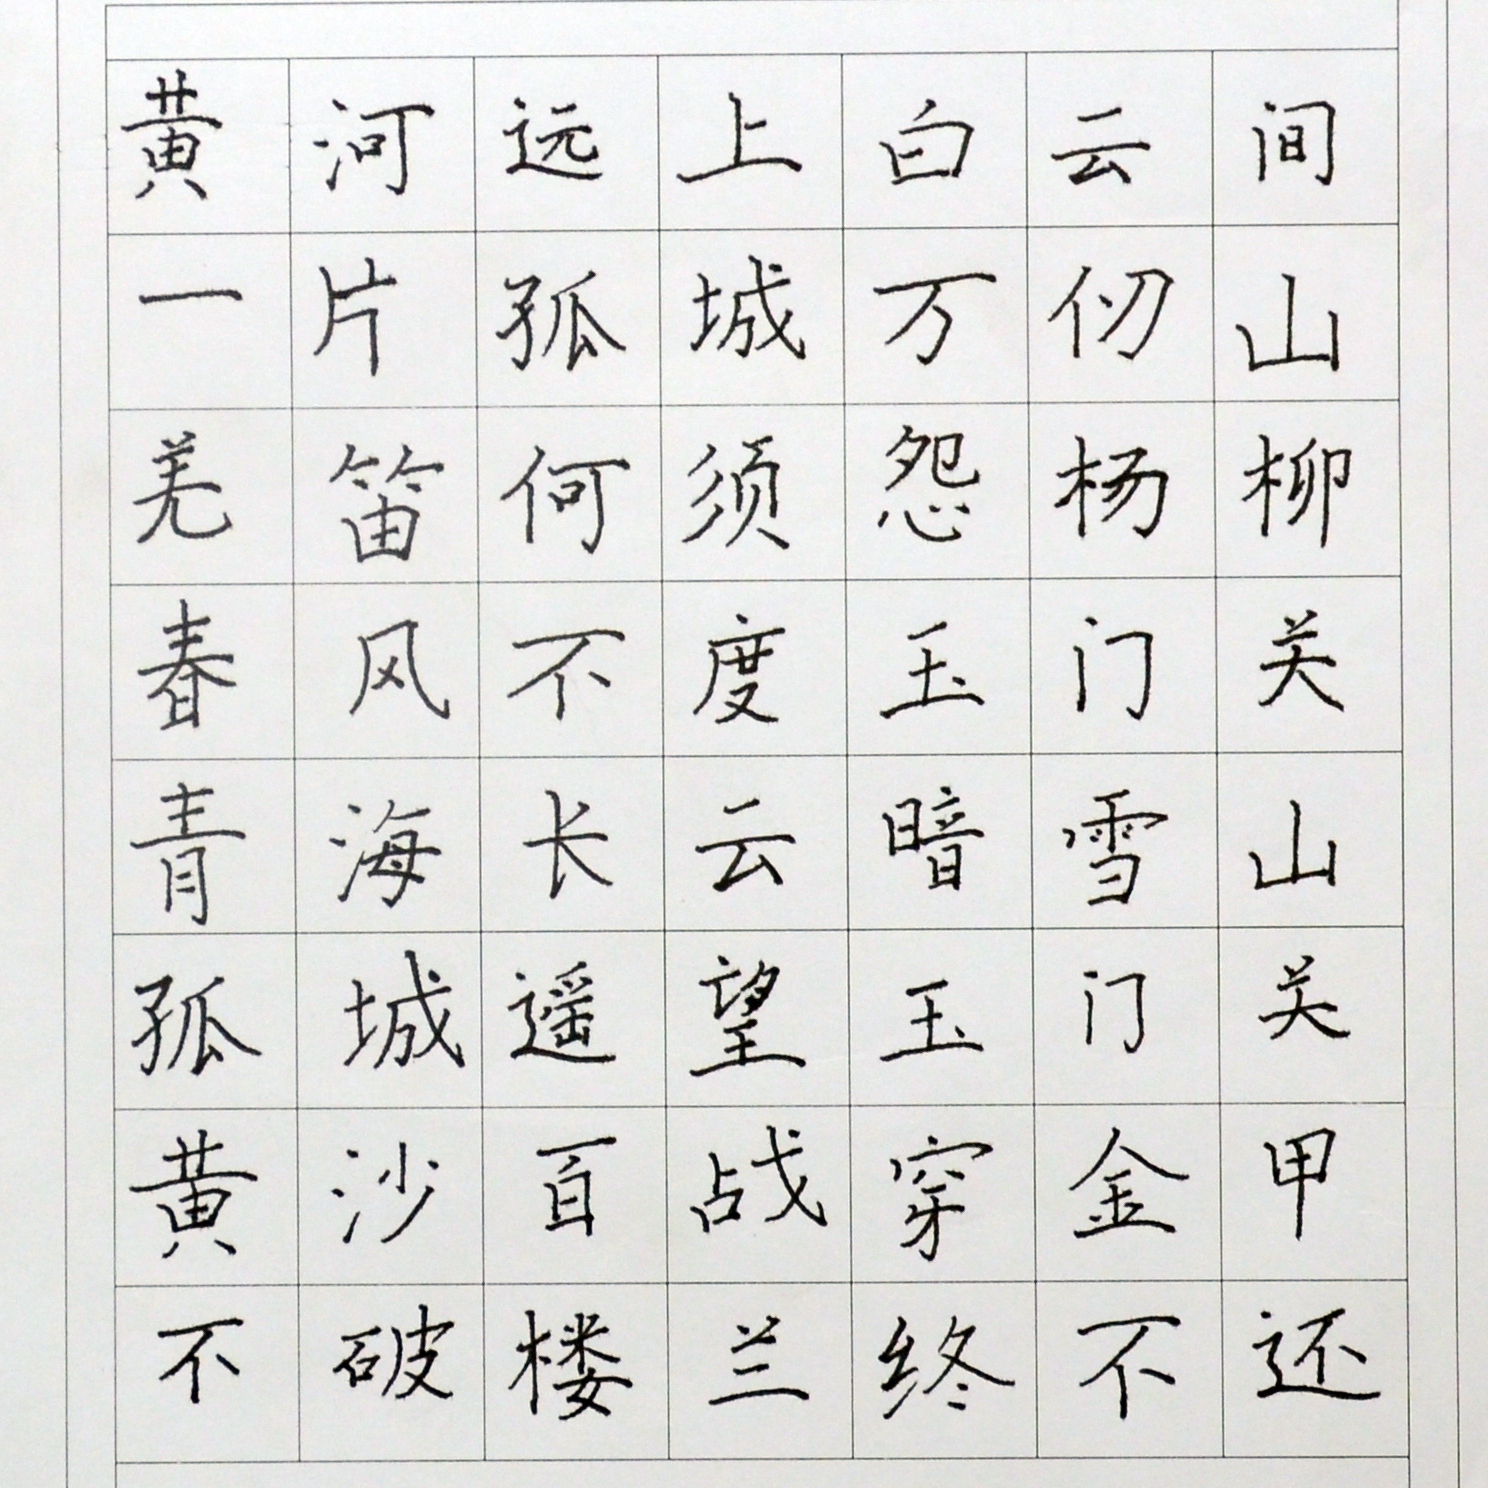 黄河远上白云间
一片孤城万仞山
羌笛何须怨杨柳
春风不度玉门关
青海长云暗雪山
孤城遥望玉门关
黄沙百战穿金甲
不破楼兰终不还